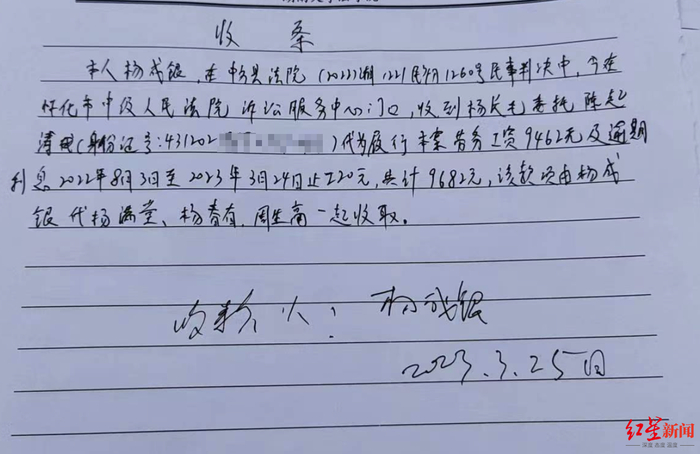 收条
本人杨成银，在中方县法院（2022）湘1221民初1260号民事判决中，今在
怀化市中级人民法院诉讼服务中心门口，收到杨长毛委托陈起
清现（身份证号：431202）代为履行本案劳务工资9462元及逾期
利息2022年8月3日至2023年3月24日止220元，共计9682元，该款项由杨成
银代杨满堂、杨春有、周生高一起收取。
收款人：杨成银
2023.3.25日
红星新闻
深度 态度 温度